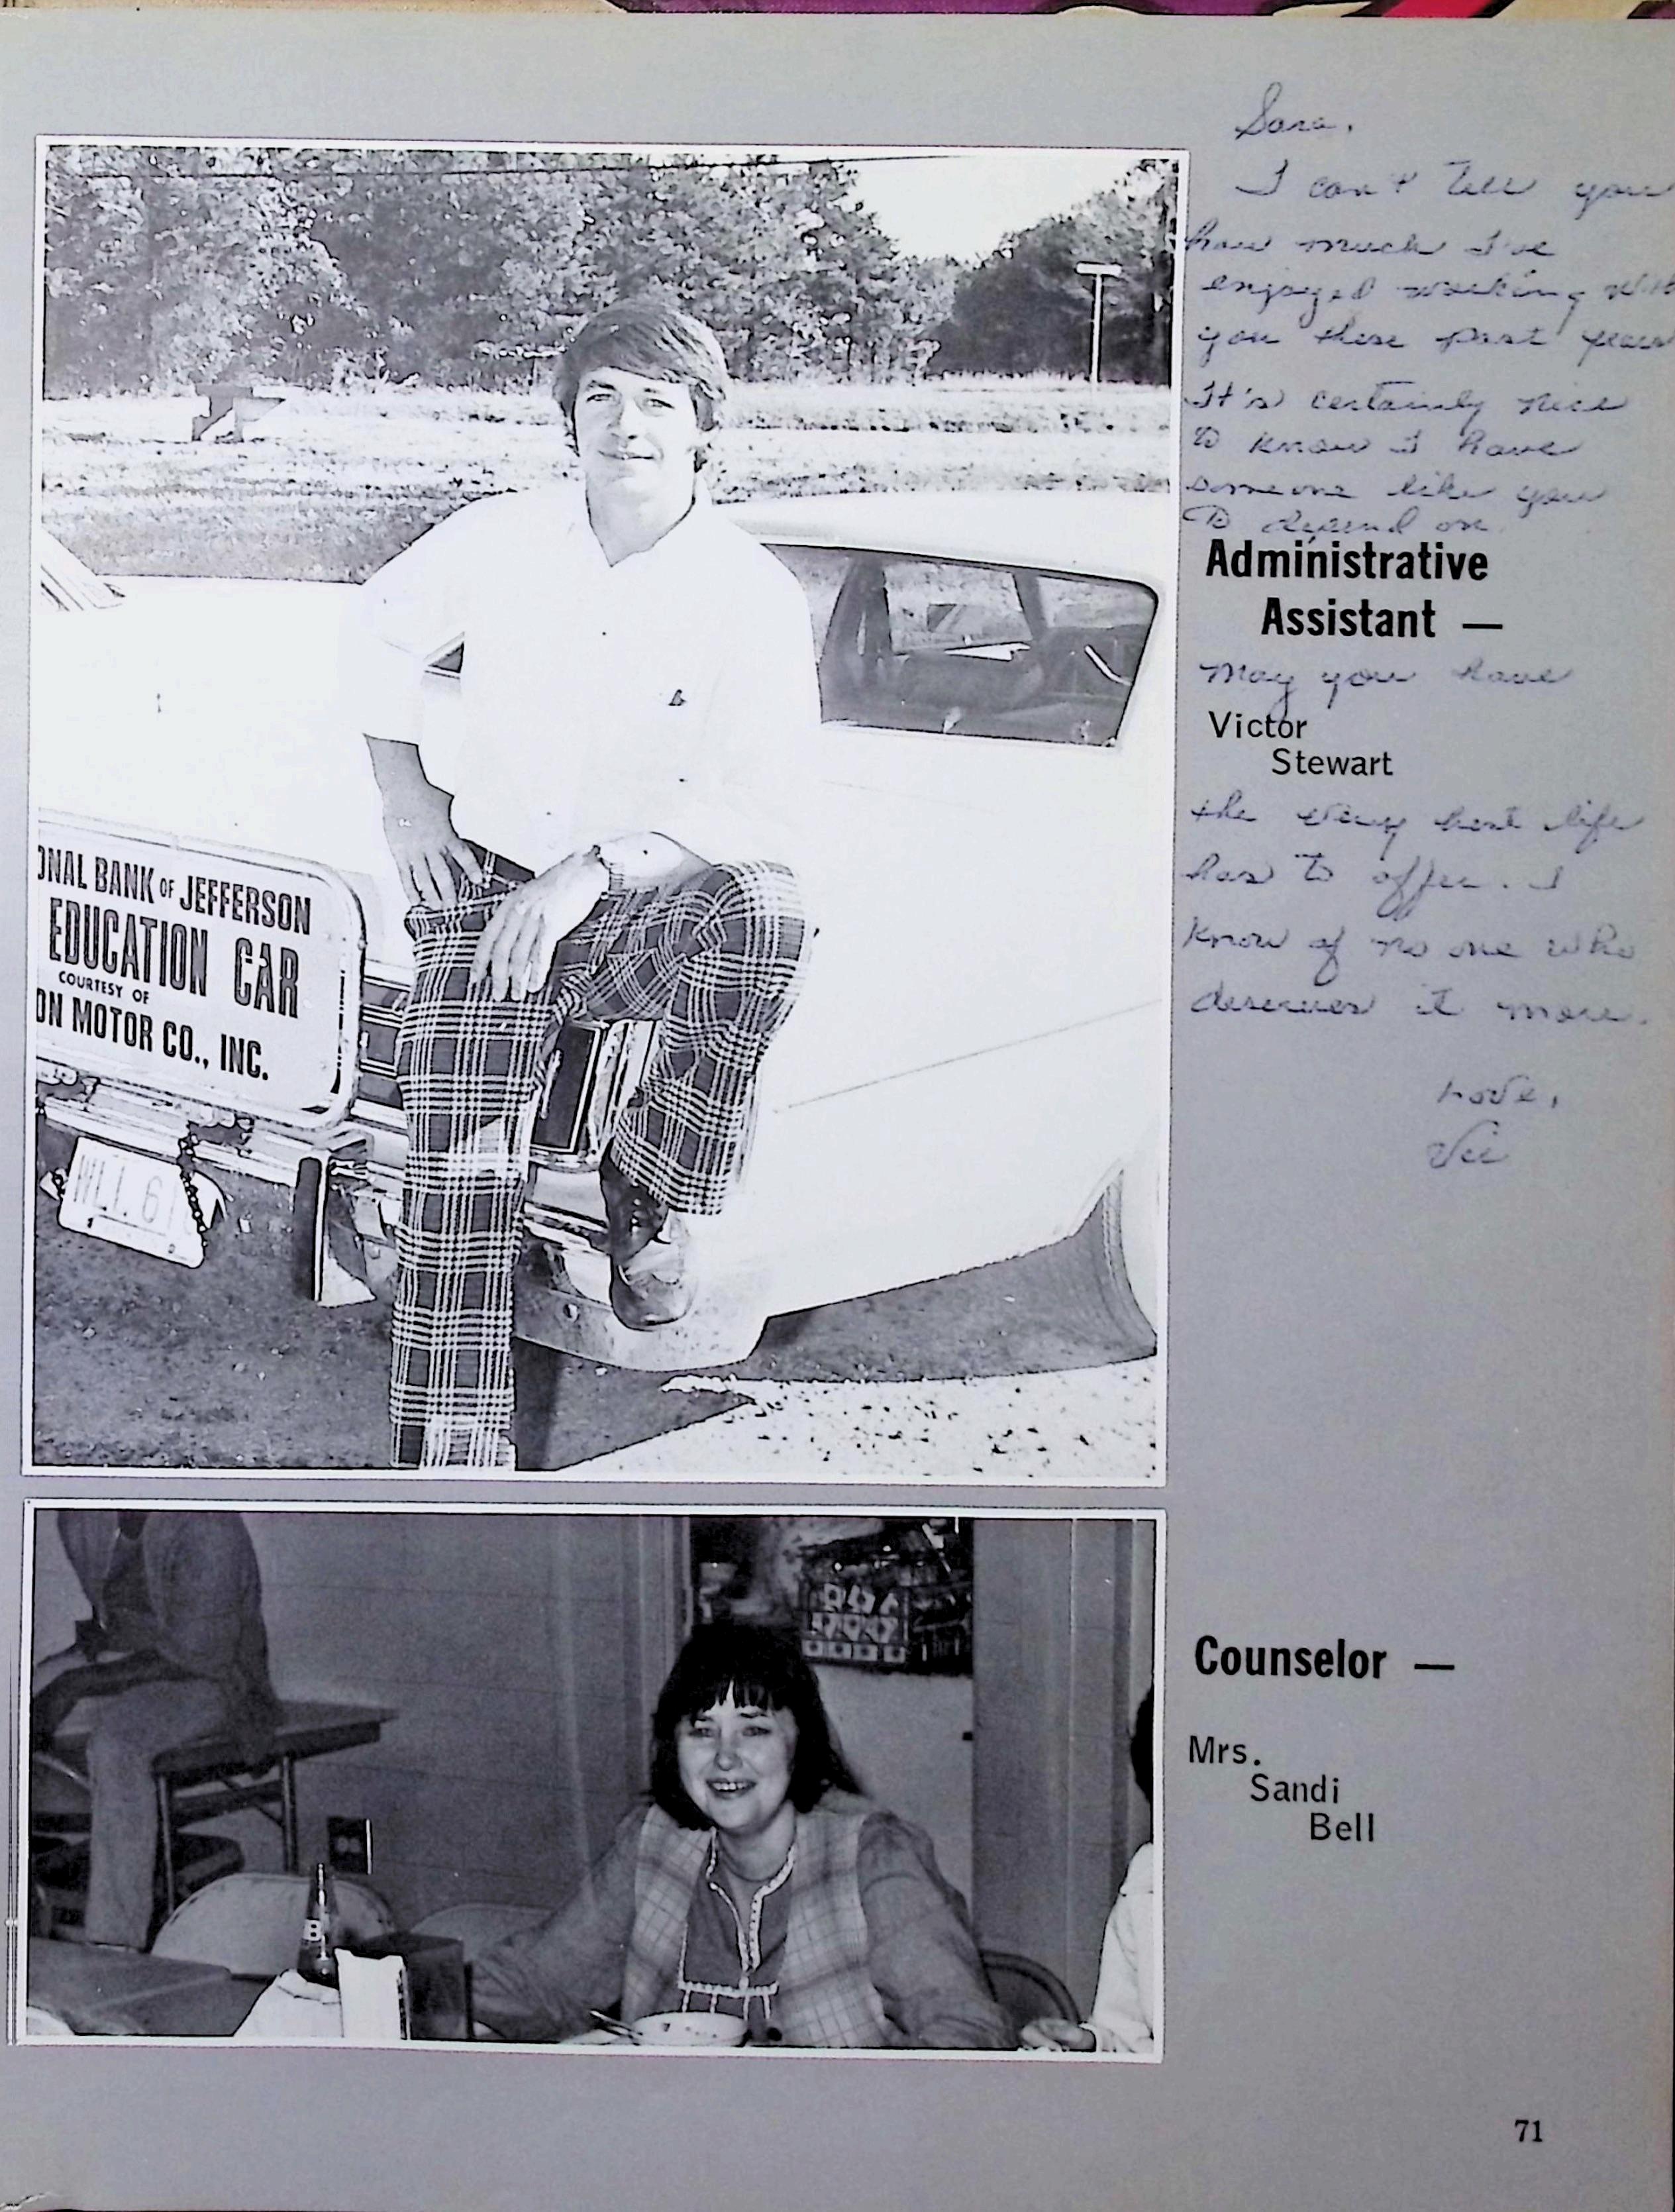 Sara,
I can't tell you
how much I've
enjoyed working with
you these past years
It's certainly nice
to know I have
someone like you
to depend on.
Administrative
Assistant —
May you have
Victor
Stewart
the very best life
has to offer. I
know of no one who
deserves it more.
Love,
Vic
ONAL BANK OF JEFFERSON
EDUCATION CAR
COURTESY OF
ON MOTOR CO., INC.
Counselor —
Mrs.
Sandi
Bell
B
71